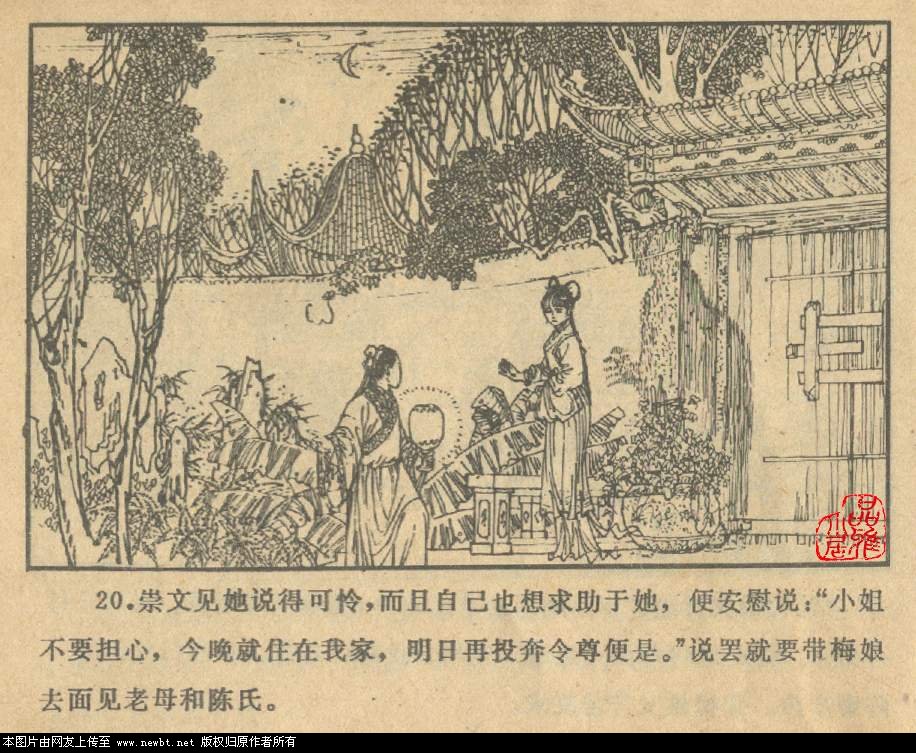 20.崇文见她说得可怜，而且自己也想求助于她，便安慰说：“小姐
不要担心，今晚就住在我家，明日再投奔令尊便是。”说罢就要带梅娘
去面见老母和陈氏。
本图片由网友上传至 www.newbt.net 版权归原作者所有